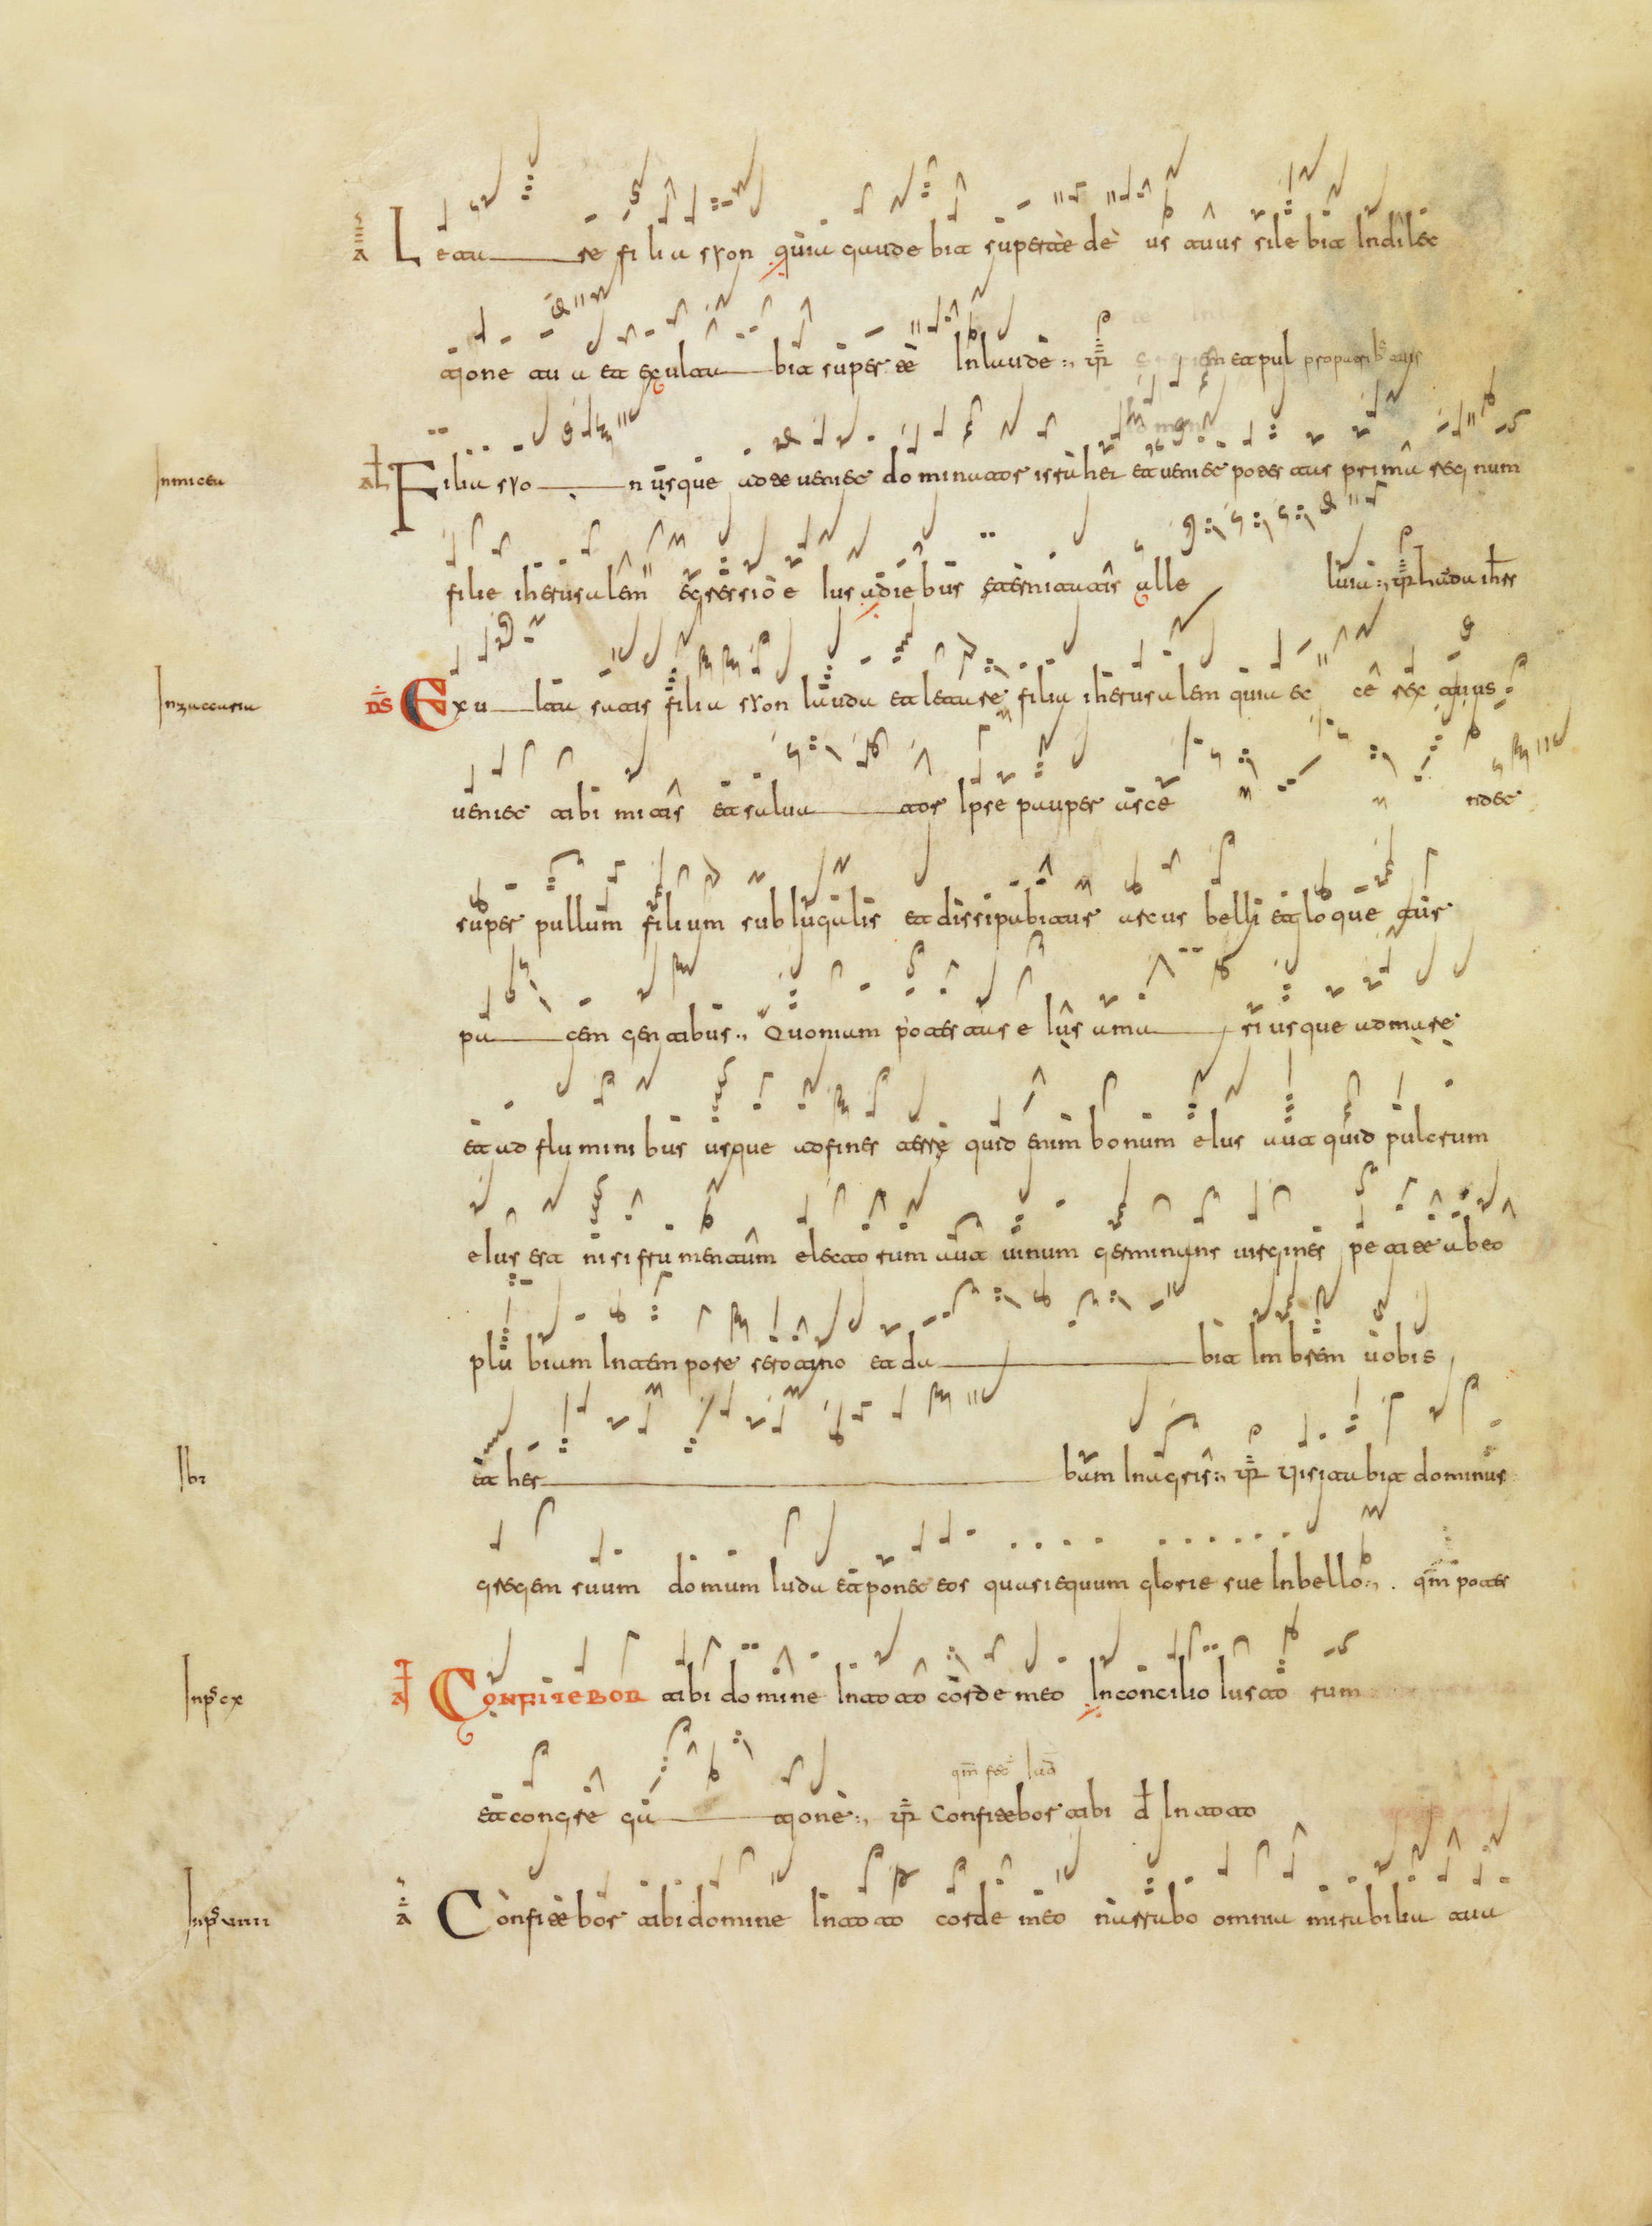 A Letare filia syon quia gaudebit super te deus tuus silebit in dilec
tione tua et exultabit super te in laude
In micea AL Filia syon usque ad te veniet dominator israhel et veniet potestas prima regnum
filie iherusalem egressio eius a diebus eternitatis alleluia VR Lauda ihrs
In zaccaria DS Exulta satis filia syon lauda et letare filia iherusalem quia ecce rex tuus
veniet tibi mitis et salvator ipse pauper ascendet
super pullum filium subiugalis et dissipabitur arcus belli et loquetur
pacem gentibus Quoniam potestas eius a mari usque ad mare
et ad fluminibus usque ad fines terre quid enim bonum eius aut quid pulcrum
eius est nisi frumentum electorum aut vinum germinans virgines petite ab eo
plubium in tempore serotino et dabit imbrem vobis
Ibi et herbam in agris VR Visitabit dominus
gregem suum domum iuda et ponet eos quasi equum glorie sue in bello qm potes
In ps cx A CONFITEBOR tibi domine in toto corde meo in concilio iustorum
et congregatione VR Confitebor tibi d in toto
In ps viiii A Confitebor tibi domine in toto corde meo narrabo omnia mirabilia tua